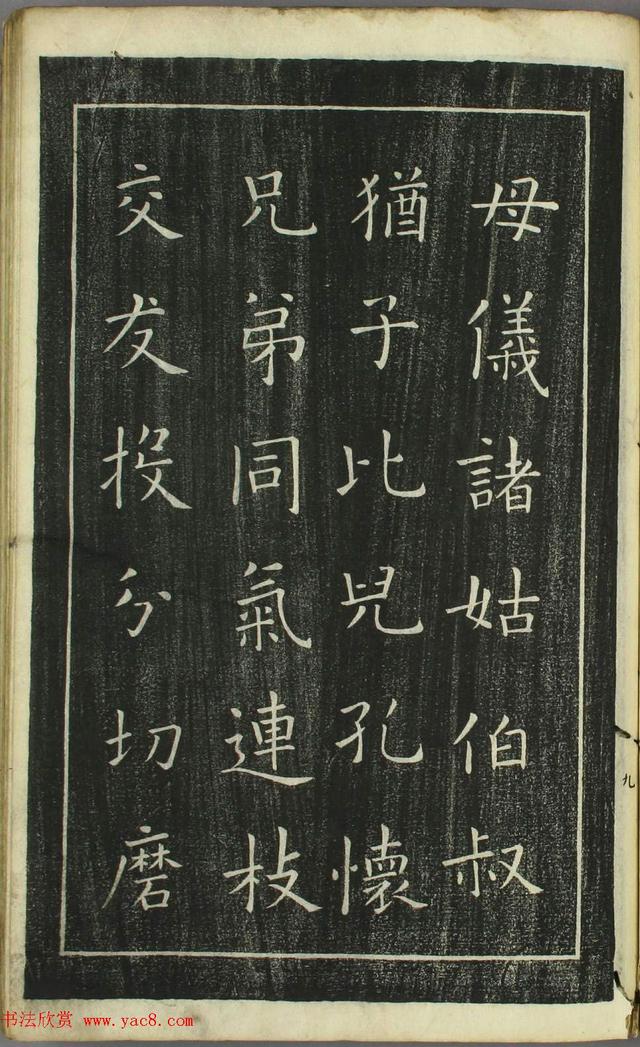 母儀諸姑伯叔
猶子比兒孔懷
兄弟同氣連枝
交友投分切磨
九
书法欣赏 www.yac8.com